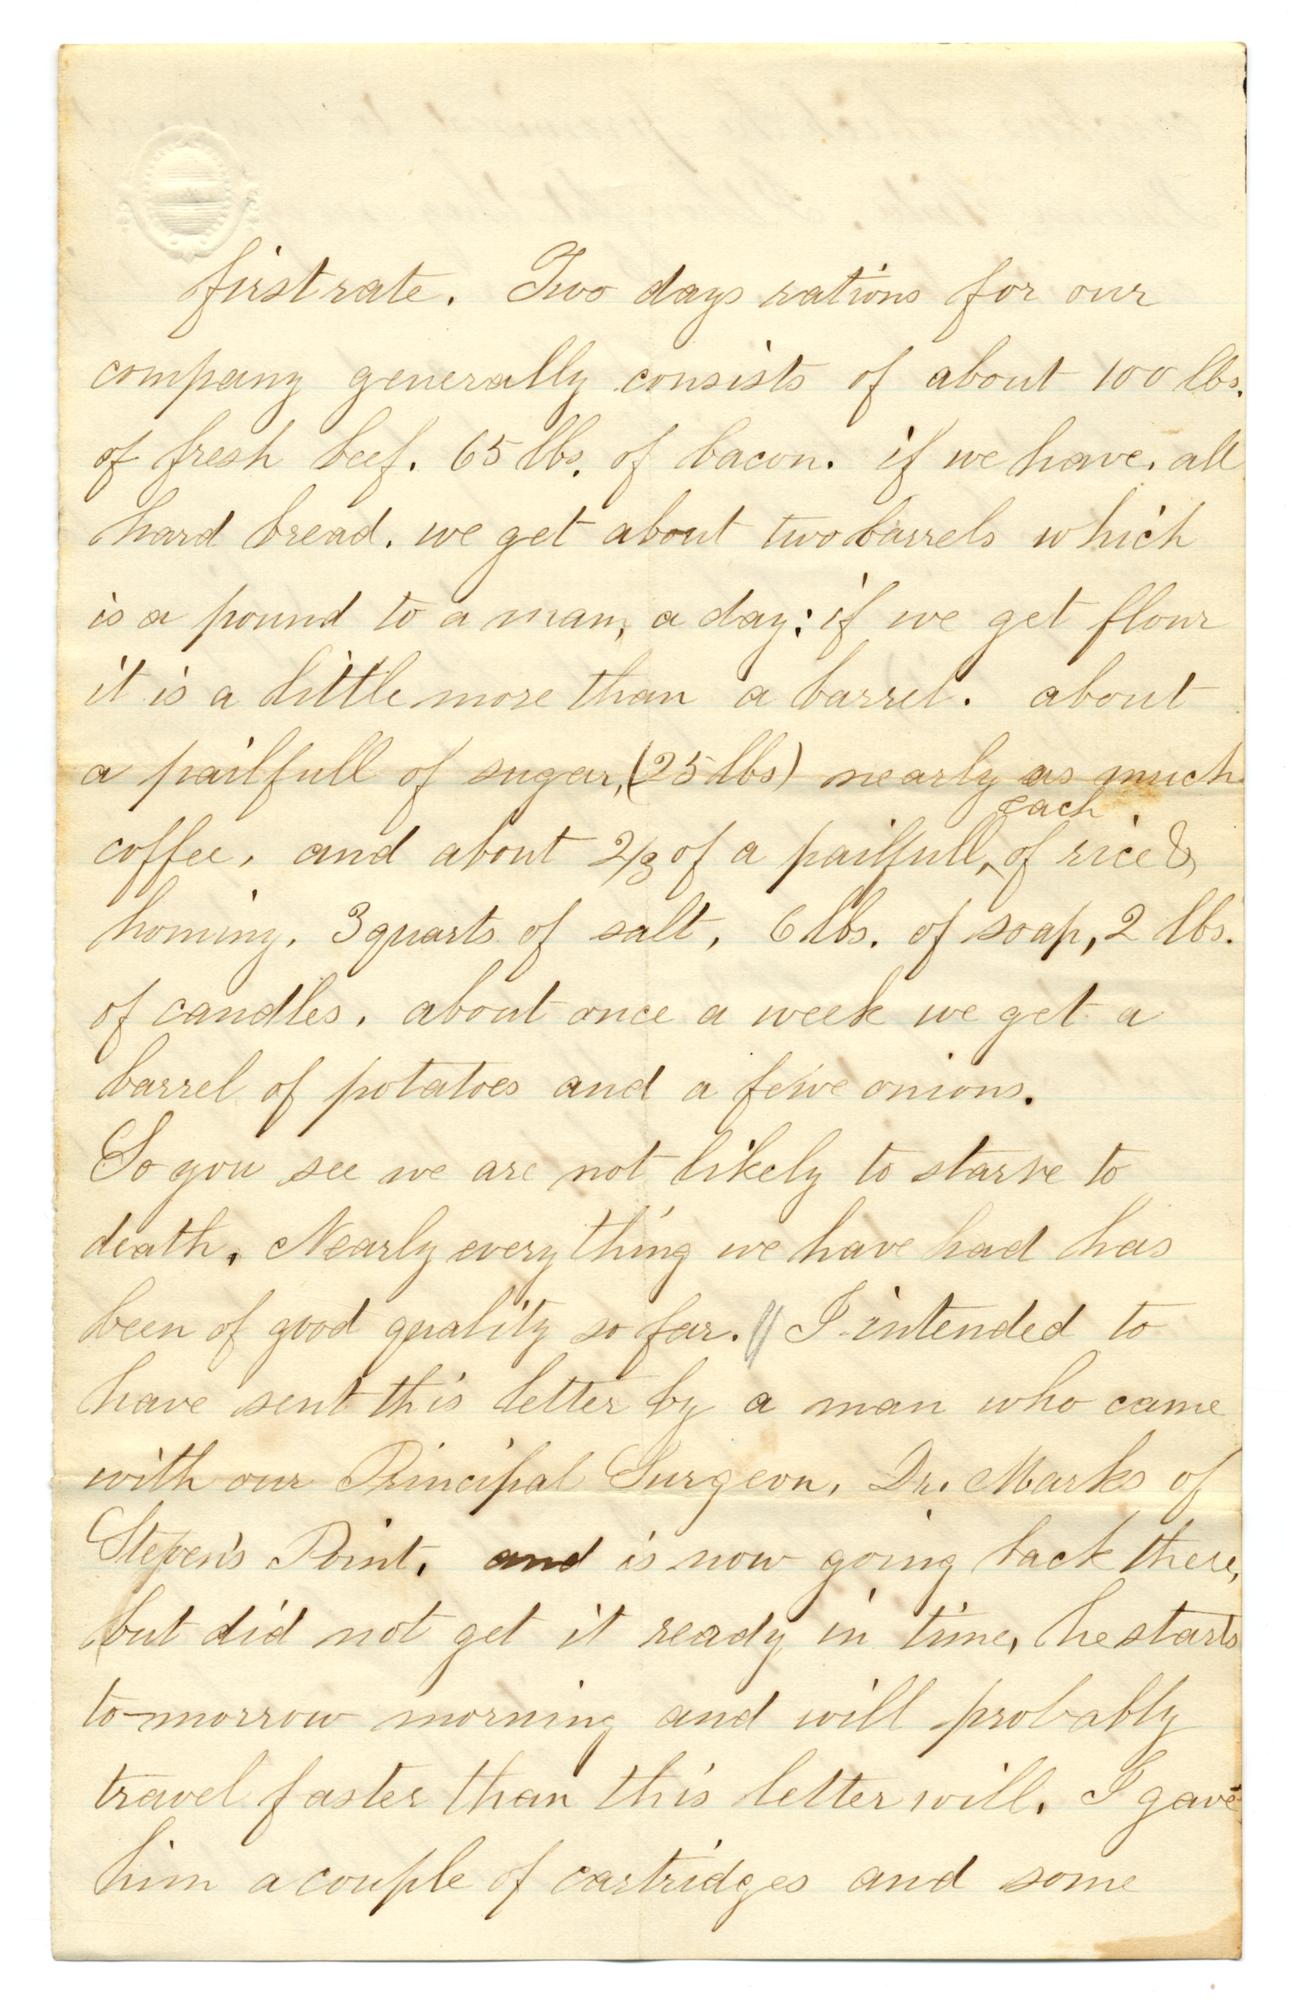 first rate. Two days rations for our
company generally consists of about 100 lbs.
of fresh beef. 65 lbs. of bacon. if we have, all
hard bread. we get about two barrels which
is a pound to a man, a day; if we get flour
it is a little more than a barrel. about
a pailfull of sugar, (25 lbs) nearly as much
each
coffee, and about 2/3 of a pailfull, ‸ of rice &
hominy. 3 quarts of salt, 6 lbs. of soap, 2 lbs.
of candles. about once a week we get a
barrel of potatoes and a fewe onions.
So you see we are not likely to starve to
death. Nearly everything we have had has
been of good quality so far. // I intended to
have sent this letter by a man who came
with our Principal Surgeon, Dr. Marks of
Steven's Point, and is now going back there,
but did not get it ready in time, he starts
to-morrow morning and will probably
travel faster than this letter will. I gave
him a couple of cartridges and some